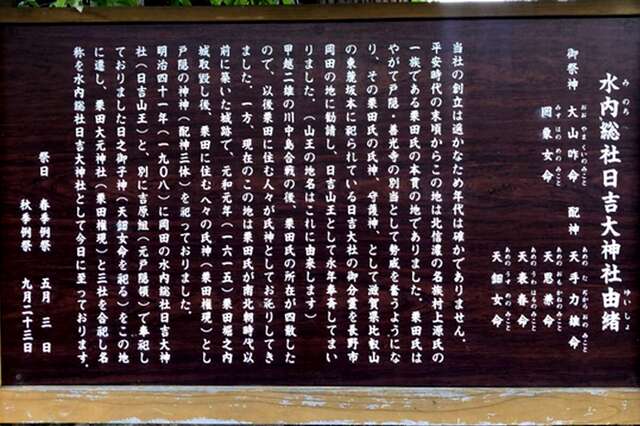 水内総社日吉大神社由緒
みのち
ゆいしょ
御祭神 大山咋命 配神 天手力雄命
おおやまくいのみこと
あめのたぢからおのみこと
罔象女命 天思兼命
みずはのめのみこと
天表春命
あめのうわはるのみこと
天鈿女命
あめのうずめのみこと
当社の創立は遥かなため年代は確かでありません。
平安時代の末頃からこの地は北信濃の名族村上源氏の
一族である栗田氏の本貫の地でありました。栗田氏は
やがて戸隠・善光寺の別当として勢威を奮うようにな
り、その栗田氏の氏神、守護神、として滋賀県比叡山
の東麓坂本に祀られている日吉大社の御分霊を長野市
岡田の地に勧請し、日吉山王として永年奉斎してまい
りました。(山王の地名はこれに由来します)
甲越二雄の川中島合戦の後、栗田氏の所在が四散した
ので、以後栗田に住む人々が氏神としてお祀りしてき
ました。一方、現在のこの地は栗田氏が南北朝時代以
前に築いた城跡で、元和元年(一六一五)栗田堀之内
城取毀し後、栗田に住む人々の氏神(栗田権現)とし
戸隠の神神(配神三体)を祀っておりました。
明治四十一年(一九〇八)に岡田の水内総社日吉大神
社(日吉山王)と、別に吉原組(元戸隠領)で奉祀し
ておりました日之御子神(天鈿女命を祀る)をこの地
に遷し、栗田大元神社(栗田権現)と三社を合祀し名
称を水内総社日吉大神社として今日に至っております。
祭日 春季例祭 五月三日
秋季例祭 九月二十三日